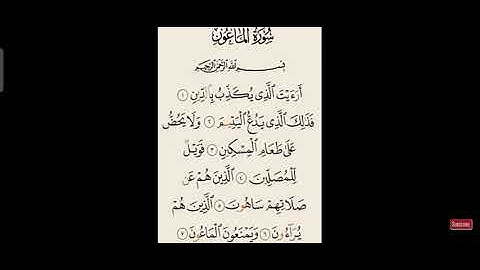 سُورَةُ الْمَاعُونِ
بِسْمِ اللَّهِ الرَّحْمَٰنِ الرَّحِيمِ
أَرَءَيْتَ الَّذِى يُكَذِّبُ بِالدِّينِ ١
فَذَٰلِكَ الَّذِى يَدُعُّ الْيَتِيمَ ٢ وَلَا يَحُضُّ
عَلَىٰ طَعَامِ الْمِسْكِينِ ٣ فَوَيْلٌ
لِلْمُصَلِّينَ ٤ الَّذِينَ هُمْ عَن
صَلَاتِهِمْ سَاهُونَ ٥ الَّذِينَ هُمْ
يُرَآءُونَ ٦ وَيَمْنَعُونَ الْمَاعُونَ ٧
SUBSCRIBE